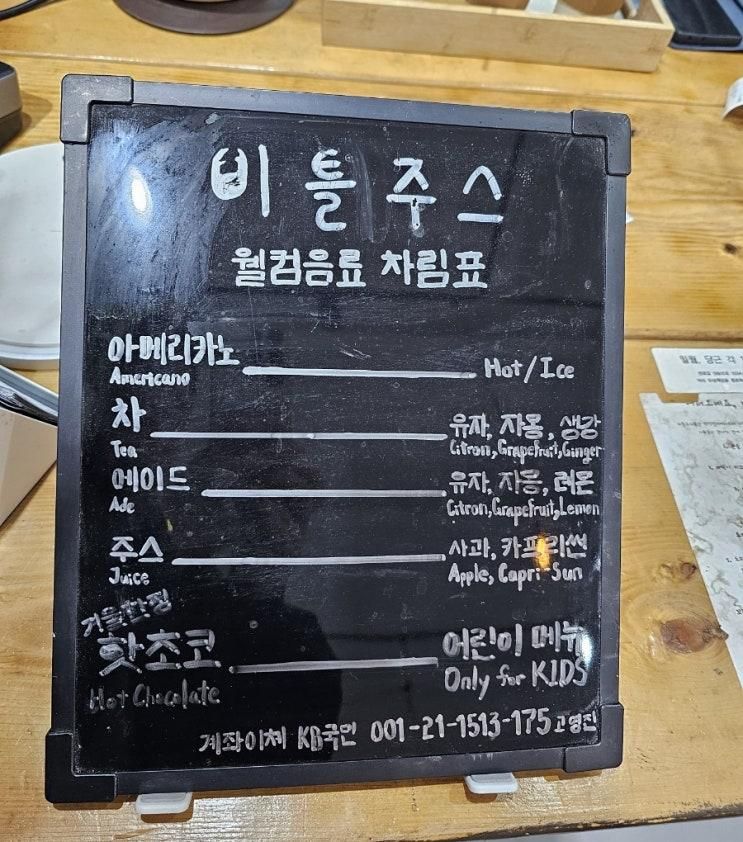 비틀주스
웰컴음료 차림표
아메리카노 Hot/Ice
Americano
차 유자, 자몽, 생강
Tea Citron, Grapefruit, Ginger
에이드 유자, 자몽, 레몬
Ade Citron, Grapefruit, Lemon
주스 사과, 카프리썬
Juice Apple, Capri-Sun
겨울한정
핫초코 어린이 메뉴
Hot Chocolate Only for KIDS
계좌이체 KB국민 001-21-1513-175 고영진